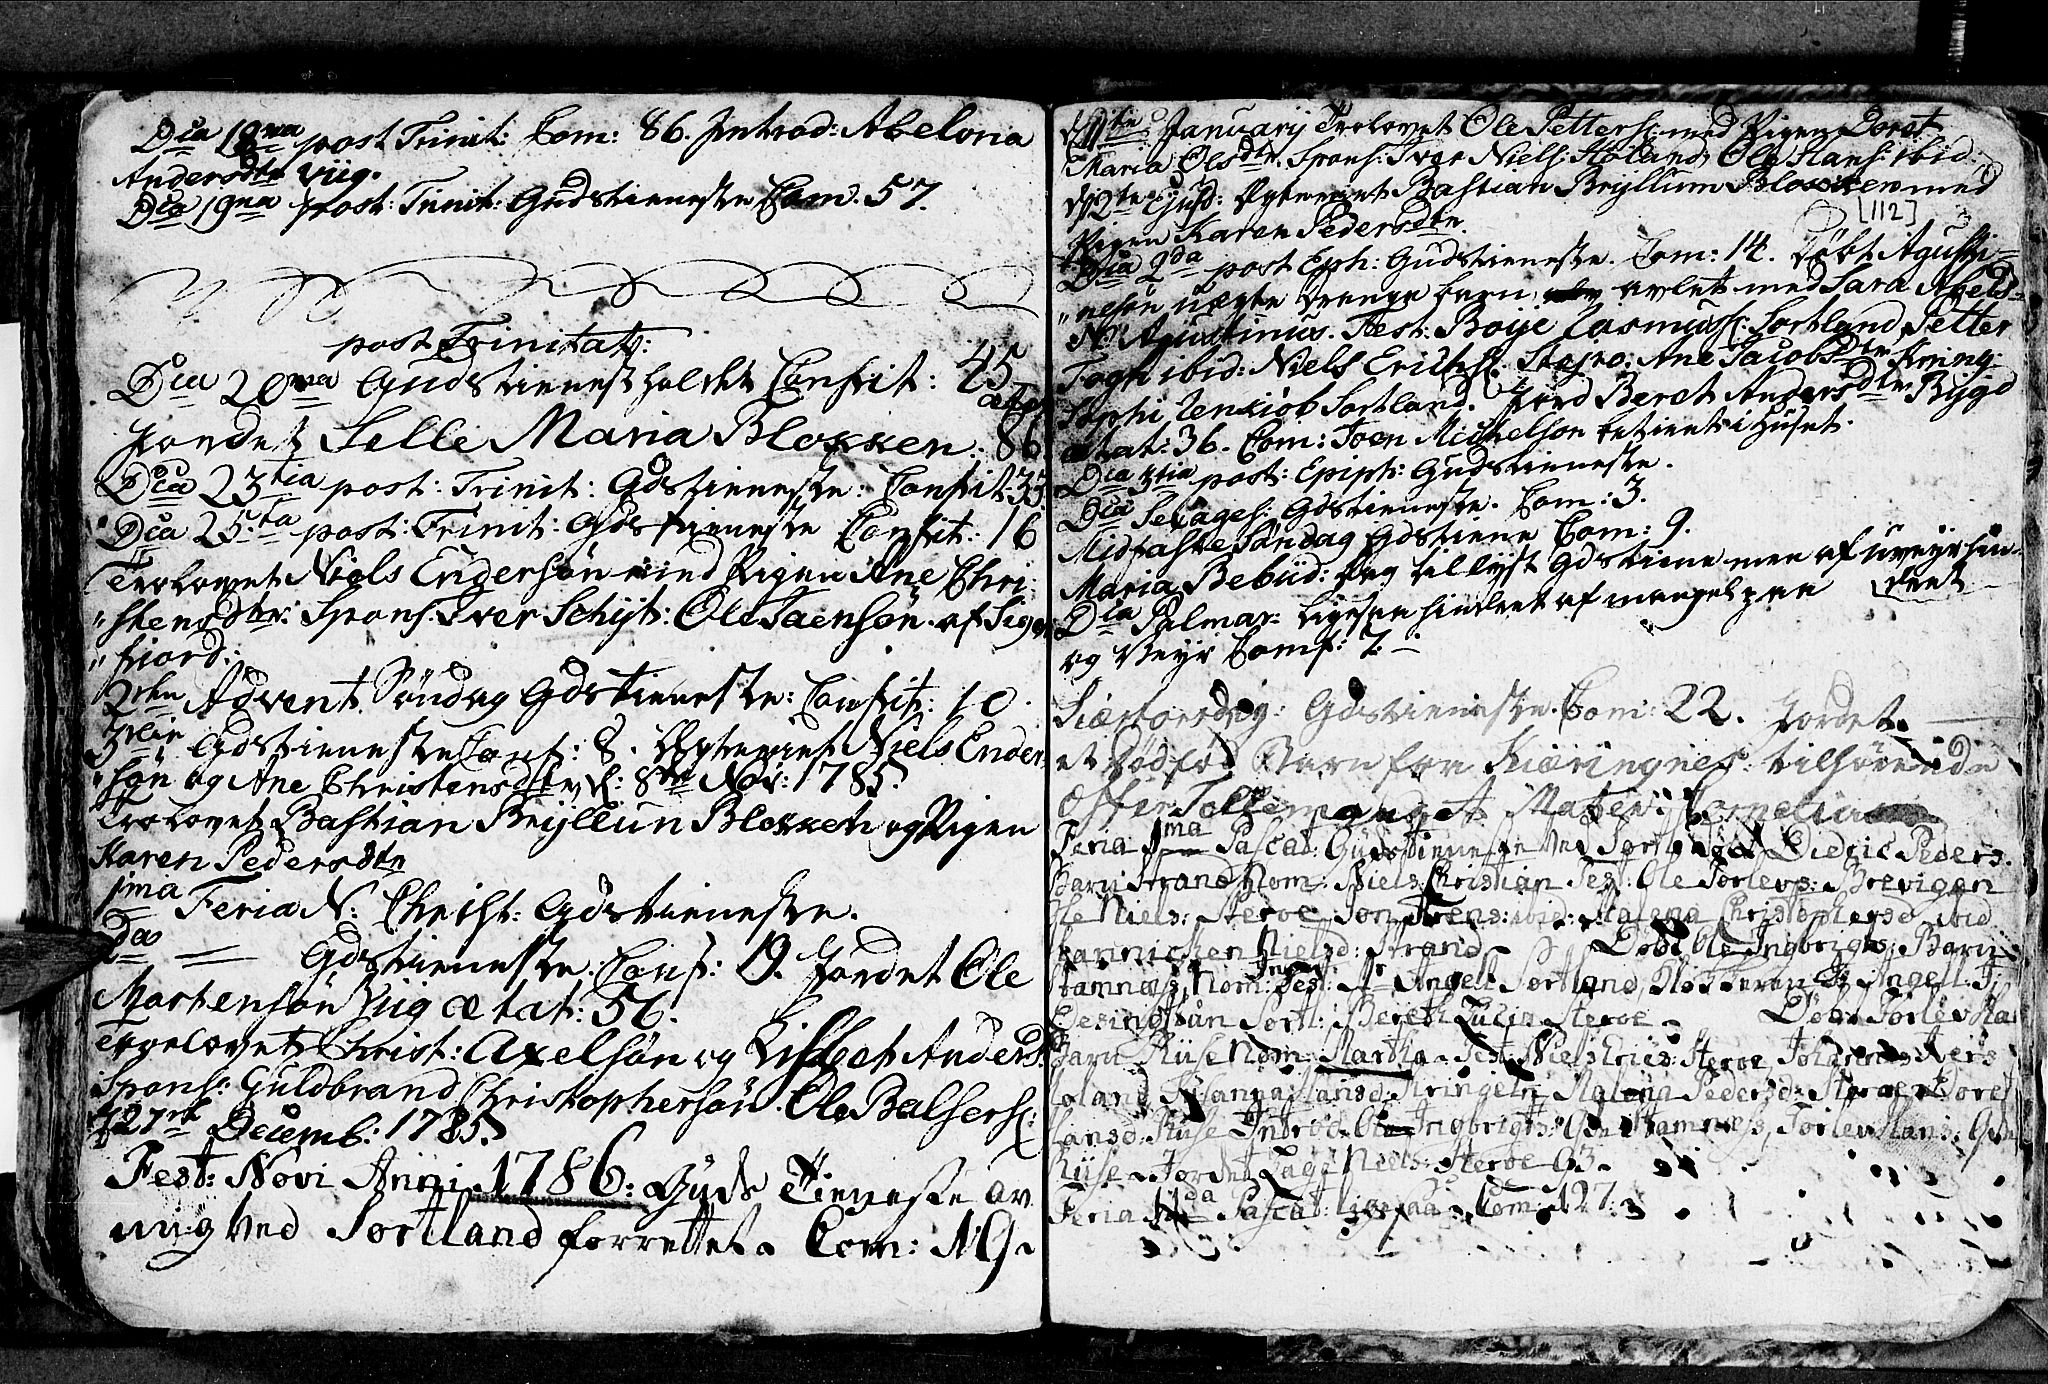 Dca 18na post Trinit: Com: 86. Introd: Abelona
Andersdtr Viig.
Dca 19na post: Trinit: Gudstieneste Com. 57.
post Trinitat:
Dca 20ma Gudstienest holdet Confit: 45
Jordet Selle Maria Blokken: 86
Dca 23tia post: Trinit: Gdstieneste: Confit: 33
Dca 25ta post: Trinit: Gdstieneste Confit: 16
Trolovet Niels Endersøn med Pigen Ane Chri-
stensdtr. Spons. Iver Schyt: Ole Jaensøn. af Siger
fiord:
2den Advent Søndag Gdstieneste: Confit: 10.
3die Gdstieneste Conf: 8. Egteviet Niels Ender
søn og Ane Christensdtr d: 8de Nov: 1785.
Trolovet Bastian Bryllun Blokken og Pigen
Karen Pedersdtr
1ma Feria N: Christ: Gdstieneste.
2da Gdstieneste: Conf: 19. Jordet Ole
Martensøn Viig ætat: 56.
Trolovet Christ: Axelsøn og Lisbet Anders:
Spons: Guldbrand Christophersøn. Ole Balsers:
d 27de Decemb: 1785.
Fest: Novi Anni 1786: Guds Tieneste
ved Sortland forrettet. Com:
Januarij Trolovet Ole Petters: med Pigen Doret
Maria Olsdtr. Spons: Iver Niels: Holand, Ole Hans: ibid.
Ejusd: Egteviet Bastian Bryllum Blokken med
[112]
Pigen Karen Pedersdtr.
Dca 2da post Eph: Gudstieneste. Com: 14. Døbt Agusti-
nesøn uægte drenge barn, avlet med Sara Abels
N: Agustinus. Test: Boije Rasmus: Sortland Petter
Fogh ibid: Niels Erichs: Ane Jacobsdtr Kring:
Sophi Sortland. Jord Beret Andersdtr Bygd
ætat: 36. Com: Joen Michelsøn betient i Huset.
Dca 3tia post: Epiph: Gudstieneste.
Dca Sexages: Gdstieneste. Com: 3.
Midfaste Søndag Gdstiene Com: 9.
Maria Bebud: Dag tillyst Gdstiene men af uveyr hin-
dret
Dca Palmar: Ligesaa hindret af mangel paa
og Veyr Comf: 7.
Skiertorsdag: Gdstieneste. Com: 22. Jordet
et Dødfød Barn fra Kiæringnes: tilhørende
Offer Tollem Mater: Cornelia
Feria 1ma Pascat: Gudstieneste ved Sortl: Døbt Dideric Peders.
Barn Strand Nom: Niels Christian Test: Ole Torlevs: Brevigen
Ole Niels: Steroe Jon Jrens: ibid: Malena Christophersd ibid
Hannichen Nielsd: Strand. Døbt Ole Ingbrigts: Barn
Hamnæs, Nom: Test: Hr Angell Sortland, Klokkeren Angell
Sortl: Bereth Steroe Døbt Torlev Ha
Barn Kuse Nom: Martha. Test: Niels Steroe Johannes Ivers
Holand, Susanna Hansd: Kringeln Malena Pedersd: Steroe Doret
Hansd: Kuse Introd. Ole Ingbrigts: Hamnæs, Torlev Hans:
Kuse. Jordet Lage Niels: Steroe 63.
Feria 2da Pascat: ligesaa Com: 127.